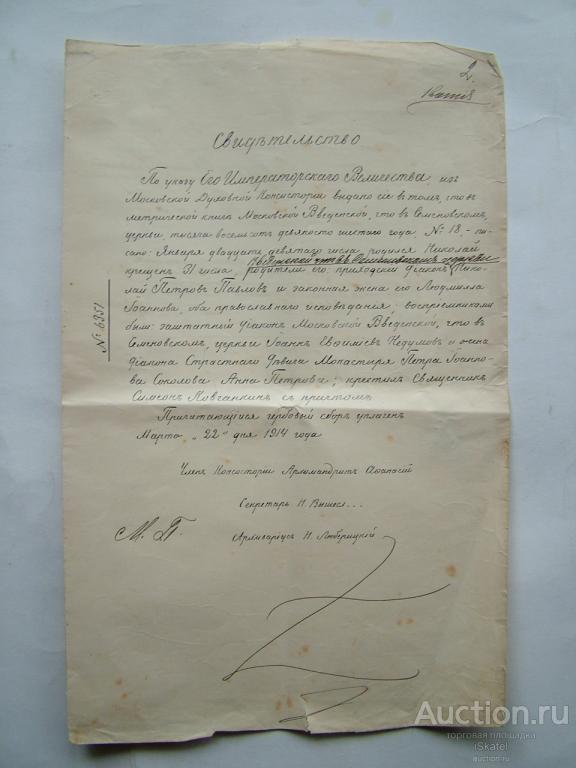 2.
Копія
Свидѣтельство
По указу Его Императорскаго Величества, изъ
Московской Духовной Консисторіи выдано сіе въ томъ, что въ
метрической книгѣ Московской Введенской, что въ Семеновскомъ,
церкви, тысяча восемьсотъ девяносто шестаго года, № 18, - пи-
сано: Января двадцать девятаго числа родился Николай
крещенъ 31 числа, родители его: приходскій діаконъ Нико-
лай Петровъ Павловъ и законная жена его Людмилла
Іоаннова, оба православнаго исповѣданія; воспріемниками
были: заштатный діаконъ Московской Введенской, что въ
Семеновскомъ, церкви Іоаннъ Недумовъ и жена
діакона Страстнаго Дѣвича Монастыря Петра Іоанно-
ва Соколова Анна Петрова; крестилъ Священникъ
Симеонъ Ковганкинъ съ причтомъ.
Причитающійся гербовый сборъ уплаченъ
Марта "22" дня 1914 года
Членъ Консисторіи Архимандритъ Аѳанасій
Секретарь Н. Вышесл...
М. П.
Архиваріусъ Н. Люберицкій
№ 6351
Auction.ru
торговая площадка
iSkatel
auction.ru